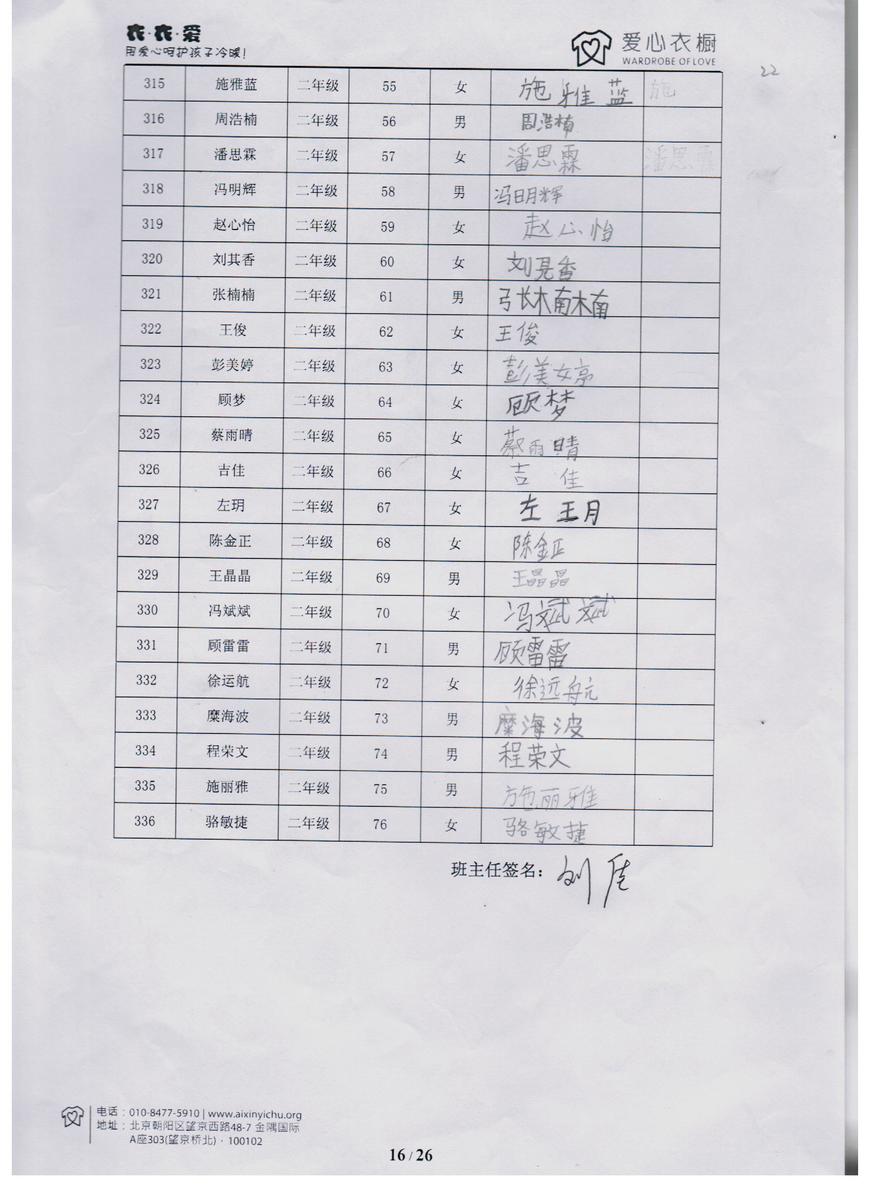 衣·衣·爱
用爱心呵护孩子冷暖!
爱心衣橱
WARDROBE OF LOVE
22
315 施雅蓝 二年级 55 女 施雅蓝 施
316 周浩楠 二年级 56 男 周浩楠
317 潘思霖 二年级 57 女 潘思霖 潘思霖
318 冯明辉 二年级 58 男 冯明辉
319 赵心怡 二年级 59 女 赵心怡
320 刘其香 二年级 60 女 刘其香
321 张楠楠 二年级 61 男 张楠楠
322 王俊 二年级 62 女 王俊
323 彭美婷 二年级 63 女 彭美婷
324 顾梦 二年级 64 女 顾梦
325 蔡雨晴 二年级 65 女 蔡雨晴
326 吉佳 二年级 66 女 吉佳
327 左玥 二年级 67 女 左玥
328 陈金正 二年级 68 女 陈金正
329 王晶晶 二年级 69 男 王晶晶
330 冯斌斌 二年级 70 女 冯斌斌
331 顾雷雷 二年级 71 男 顾雷雷
332 徐运航 二年级 72 女 徐远航
333 糜海波 二年级 73 男 糜海波
334 程荣文 二年级 74 男 程荣文
335 施丽雅 二年级 75 男 施丽雅
336 骆敏捷 二年级 76 女 骆敏捷
班主任签名: 刘佳
电话:010-8477-5910 | www.aixinyichu.org
地址:北京朝阳区望京西路48-7 金隅国际
A座303(望京桥北)·100102
16 / 26